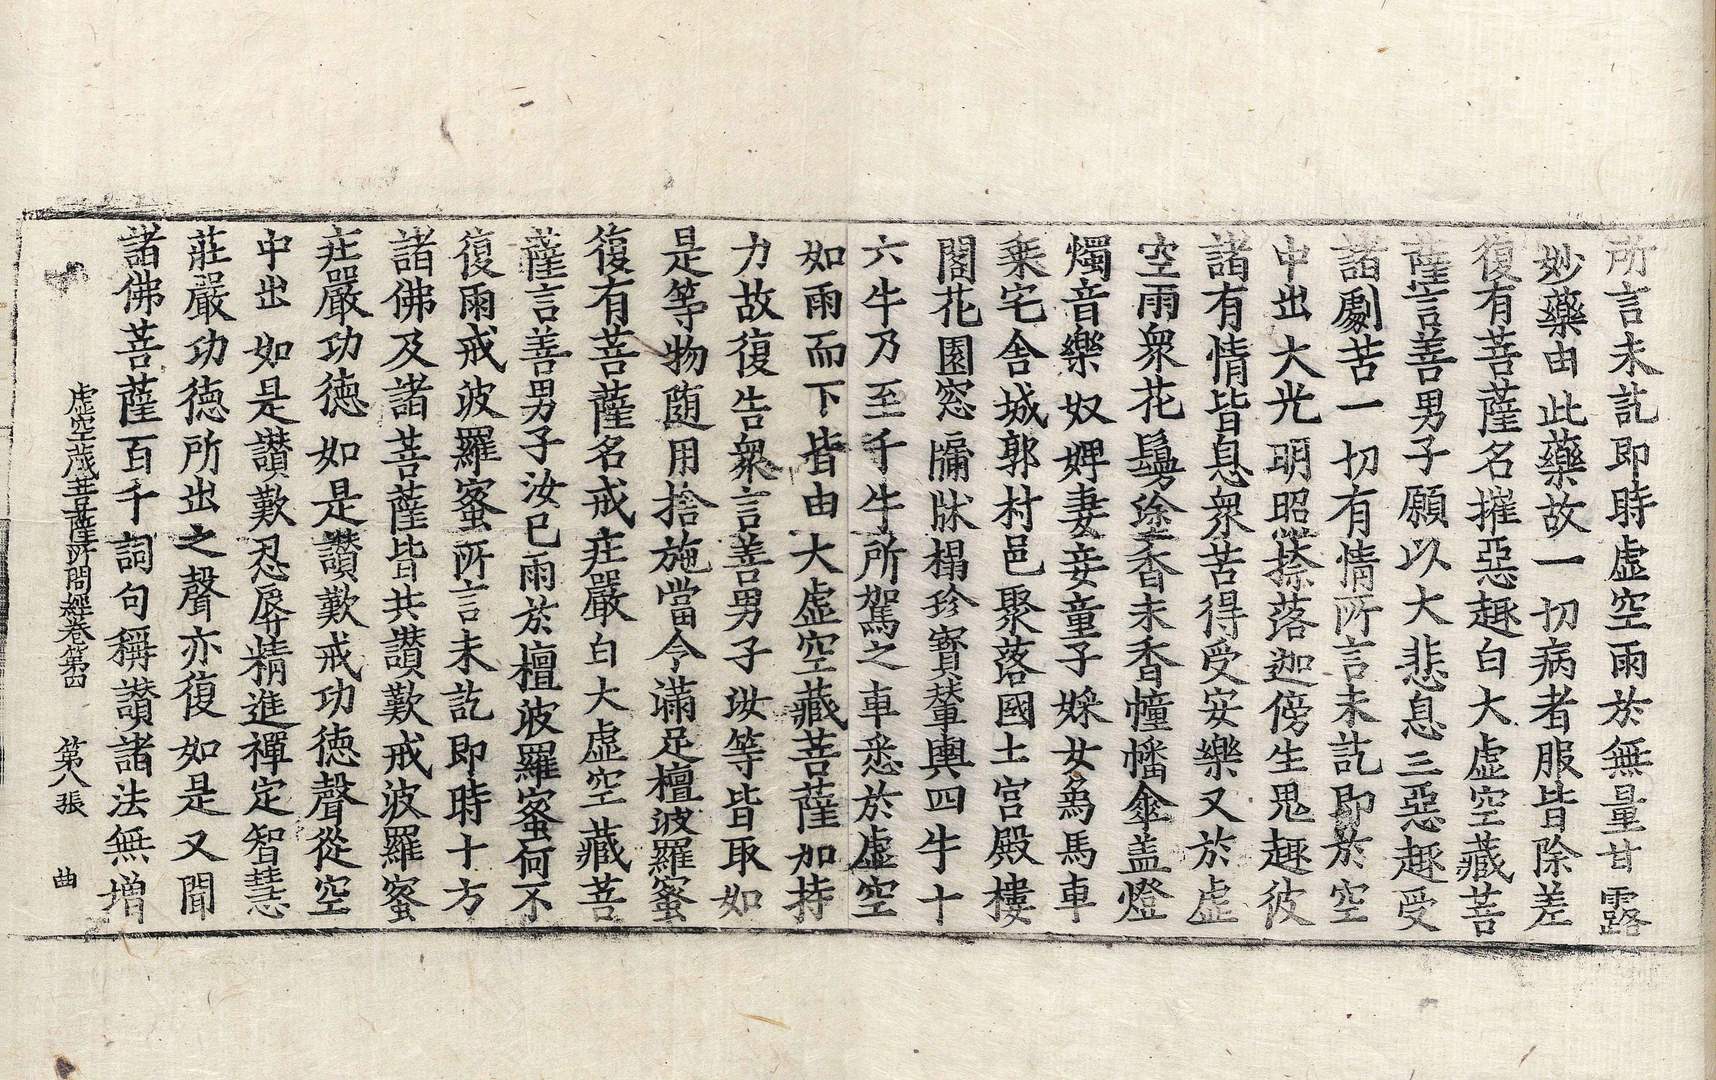 所言未訖即時虛空雨於無量甘露
妙藥由此藥故一切病者服皆除差
復有菩薩名摧惡趣白大虛空藏菩
薩言善男子願以大悲息三惡趣受
諸劇苦一切有情所言未訖即於空
中出大光明照捺落迦傍生鬼趣彼
諸有情皆息衆苦得受安樂又於虛
空雨衆花鬘塗香末香幢幡傘盖燈
燭音樂奴婢妻妾童子婇女爲馬車
乗宅舍城郭村邑聚落國土宮殿樓
閣花園窓牖牀榻珍寶輦輿四牛十
六牛乃至千牛所駕之車悉於虛空
如雨而下皆由大虛空藏菩薩加持
力故復告衆言善男子汝等皆取如
是等物随用捨施當令滿足檀波羅蜜
復有菩薩名戒莊嚴白大虛空藏菩
薩言善男子汝已雨於檀波羅蜜何不
復雨戒波羅蜜所言未訖即時十方
諸佛及諸菩薩皆共讚歎戒波羅蜜
莊嚴功德如是讚歎戒功德聲從空
中出如是讚歎忍辱精進禪定智慧
莊嚴功德所出之聲亦復如是又聞
諸佛菩薩百千詞句稱讃諸法無增
虛空藏菩薩所問經卷第四 第八張 曲